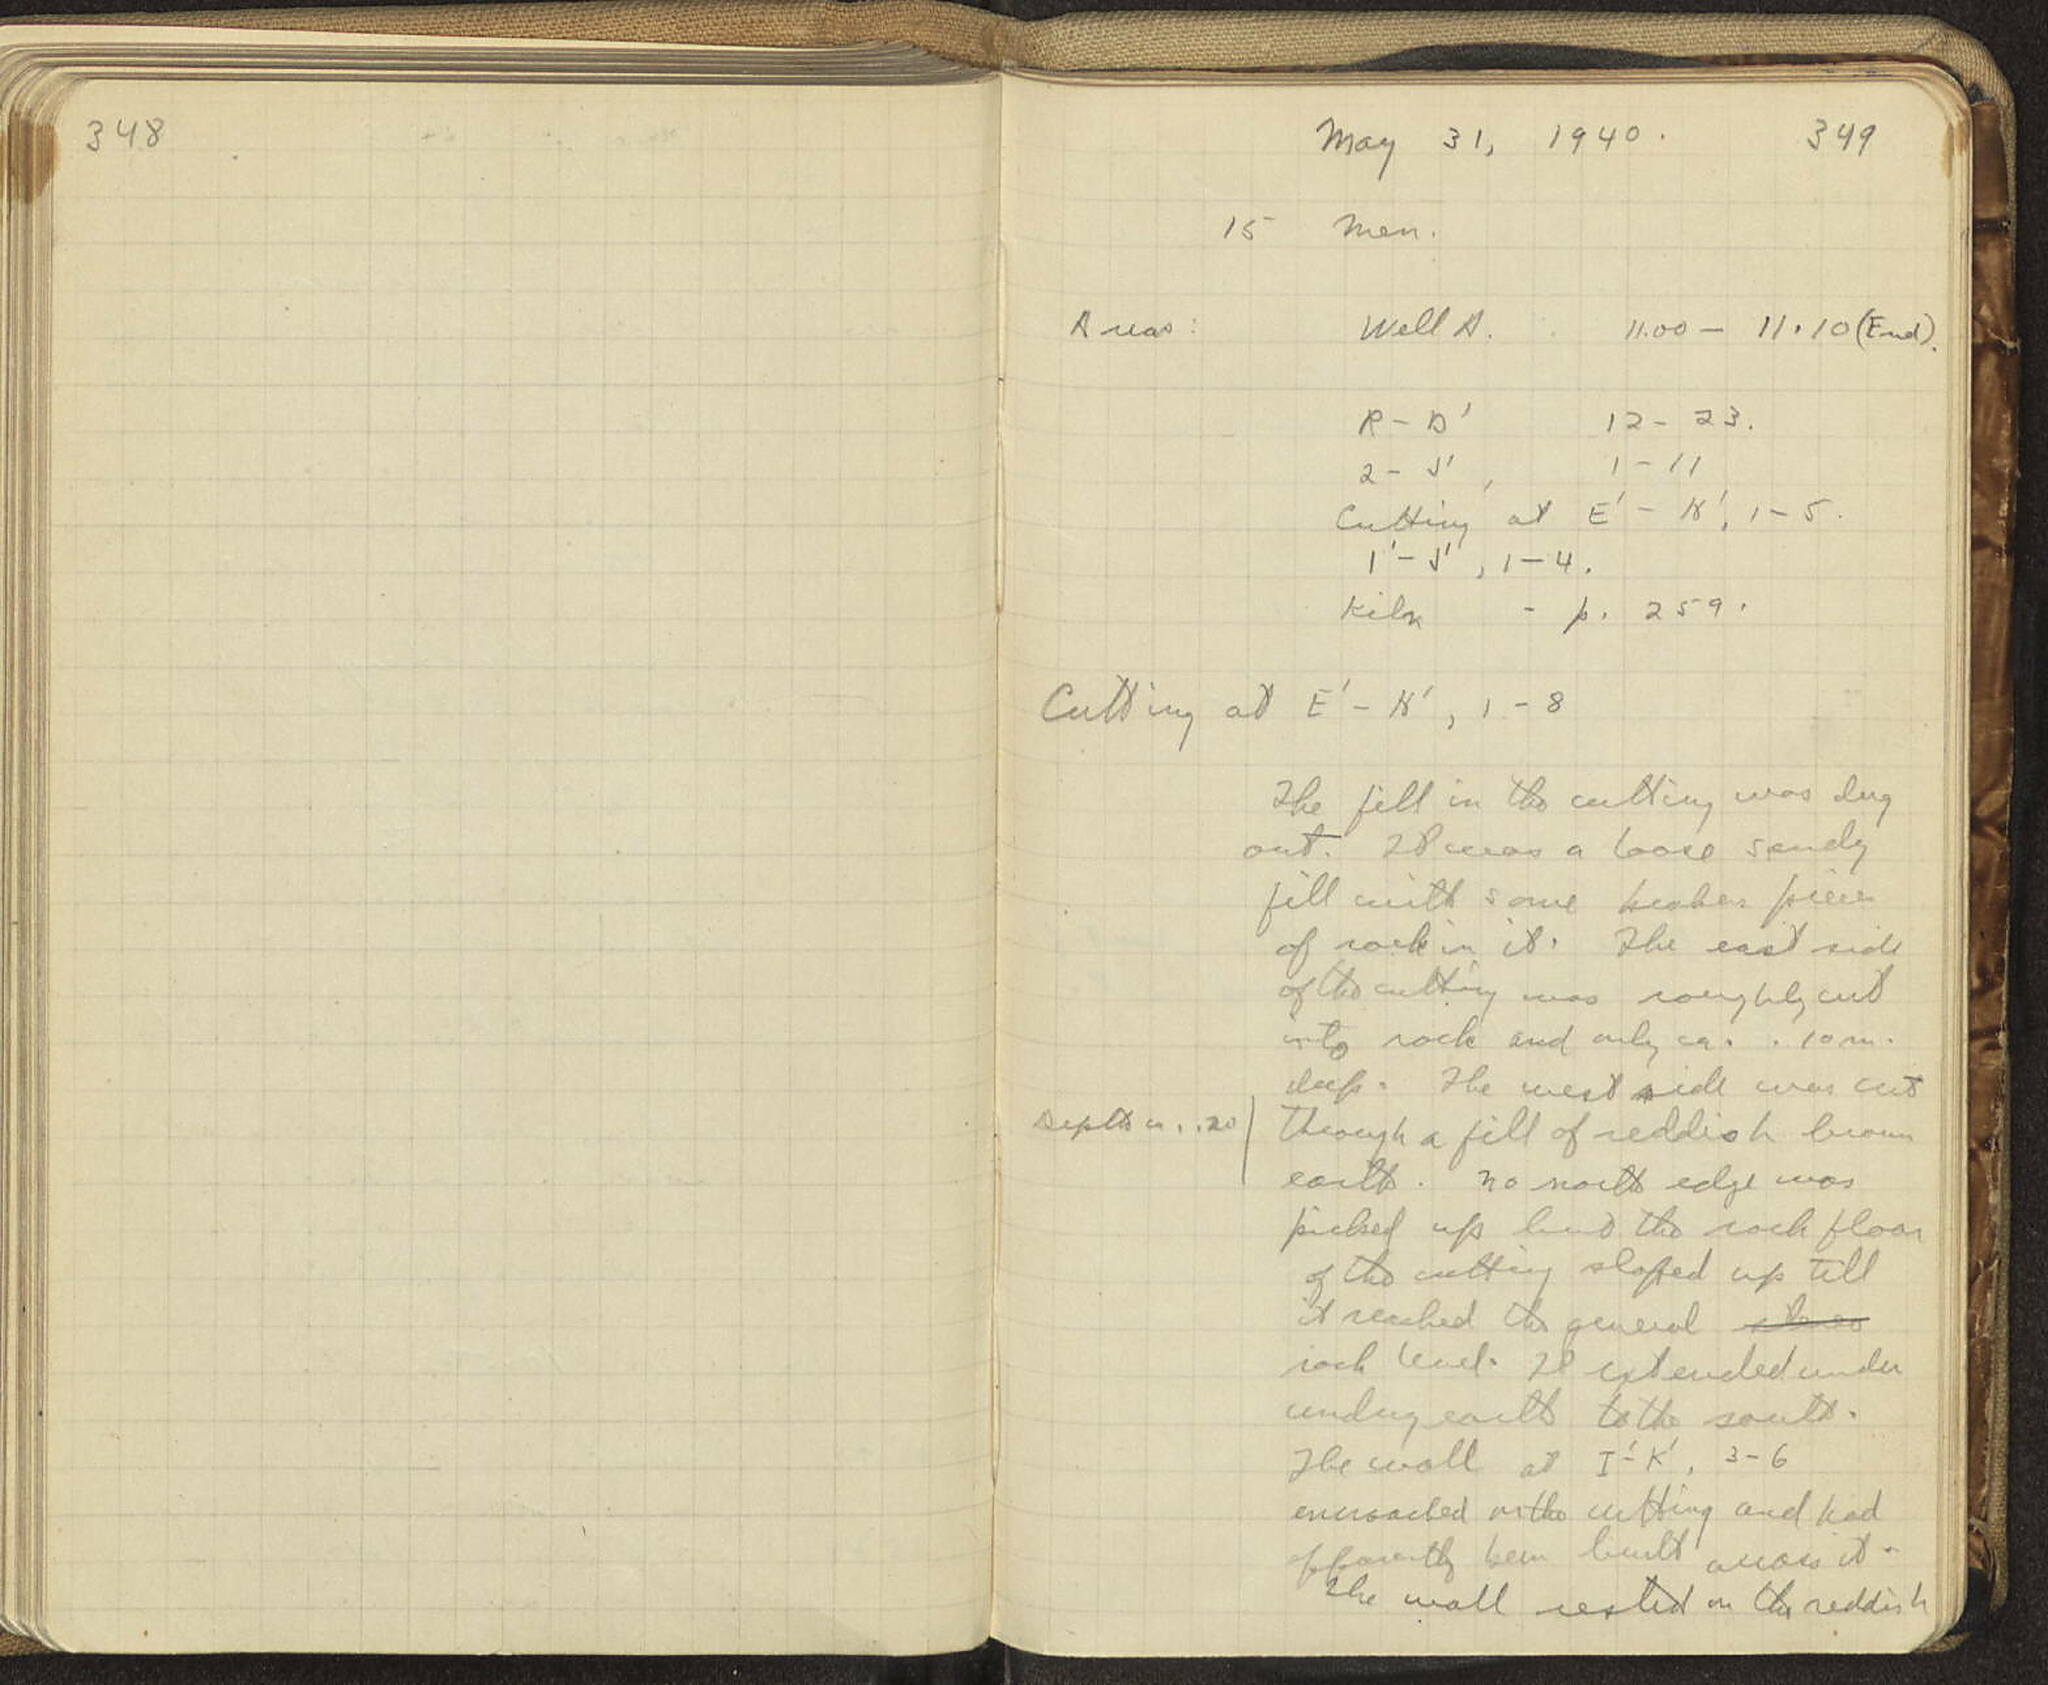 348
May 31, 1940. 349
15 Men.
Areas: Well A. 11.00 — 11.10 (End).
R - D' 12 - 23.
2 - J', 1 - 11
Cutting at E' - H', 1 - 5.
I' - J', 1 - 4.
Kiln - p. 259.
Cutting at E' - H', 1 - 8
The fill in the cutting was dug
out. It was a loose sandy
fill with some broken pieces
of rock in it. The east side
of the cutting was roughly cut
into rock and only ca. .10 m.
deep. The west side was cut
Depth ca. .20 through a fill of reddish brown
earth. No north edge was
picked up but the rock floor
of the cutting sloped up till
it reached the general
rock level. It extended under
undug earth to the south.
The wall at I' - K', 3 - 6
encroached on the cutting and had
apparently been built across it.
The wall rested on the reddish